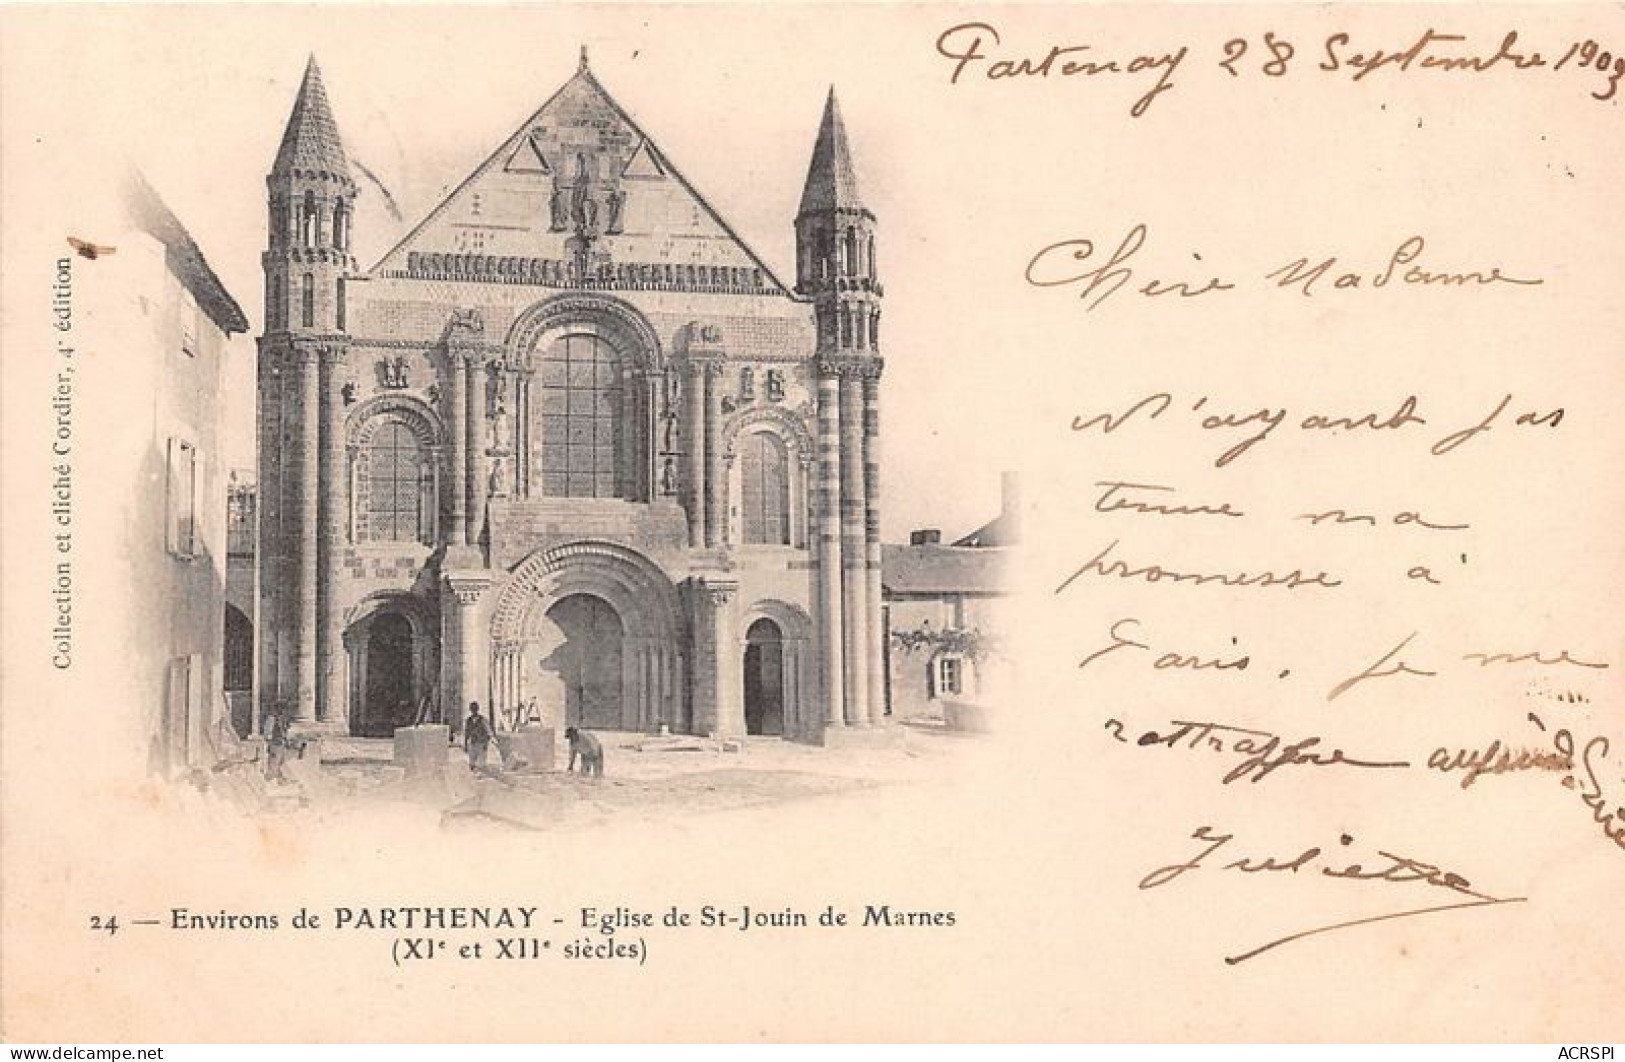 Partenay 28 Septembre 1903
Chère Madame
N'ayant pas
tenue ma
promesse à
Paris, je me
rattrappe
Juliette
Collection et cliché Cordier, 4e édition
24 — Environs de PARTHENAY - Eglise de St-Jouin de Marnes
(XIe et XIIe siècles)
ACRSPI